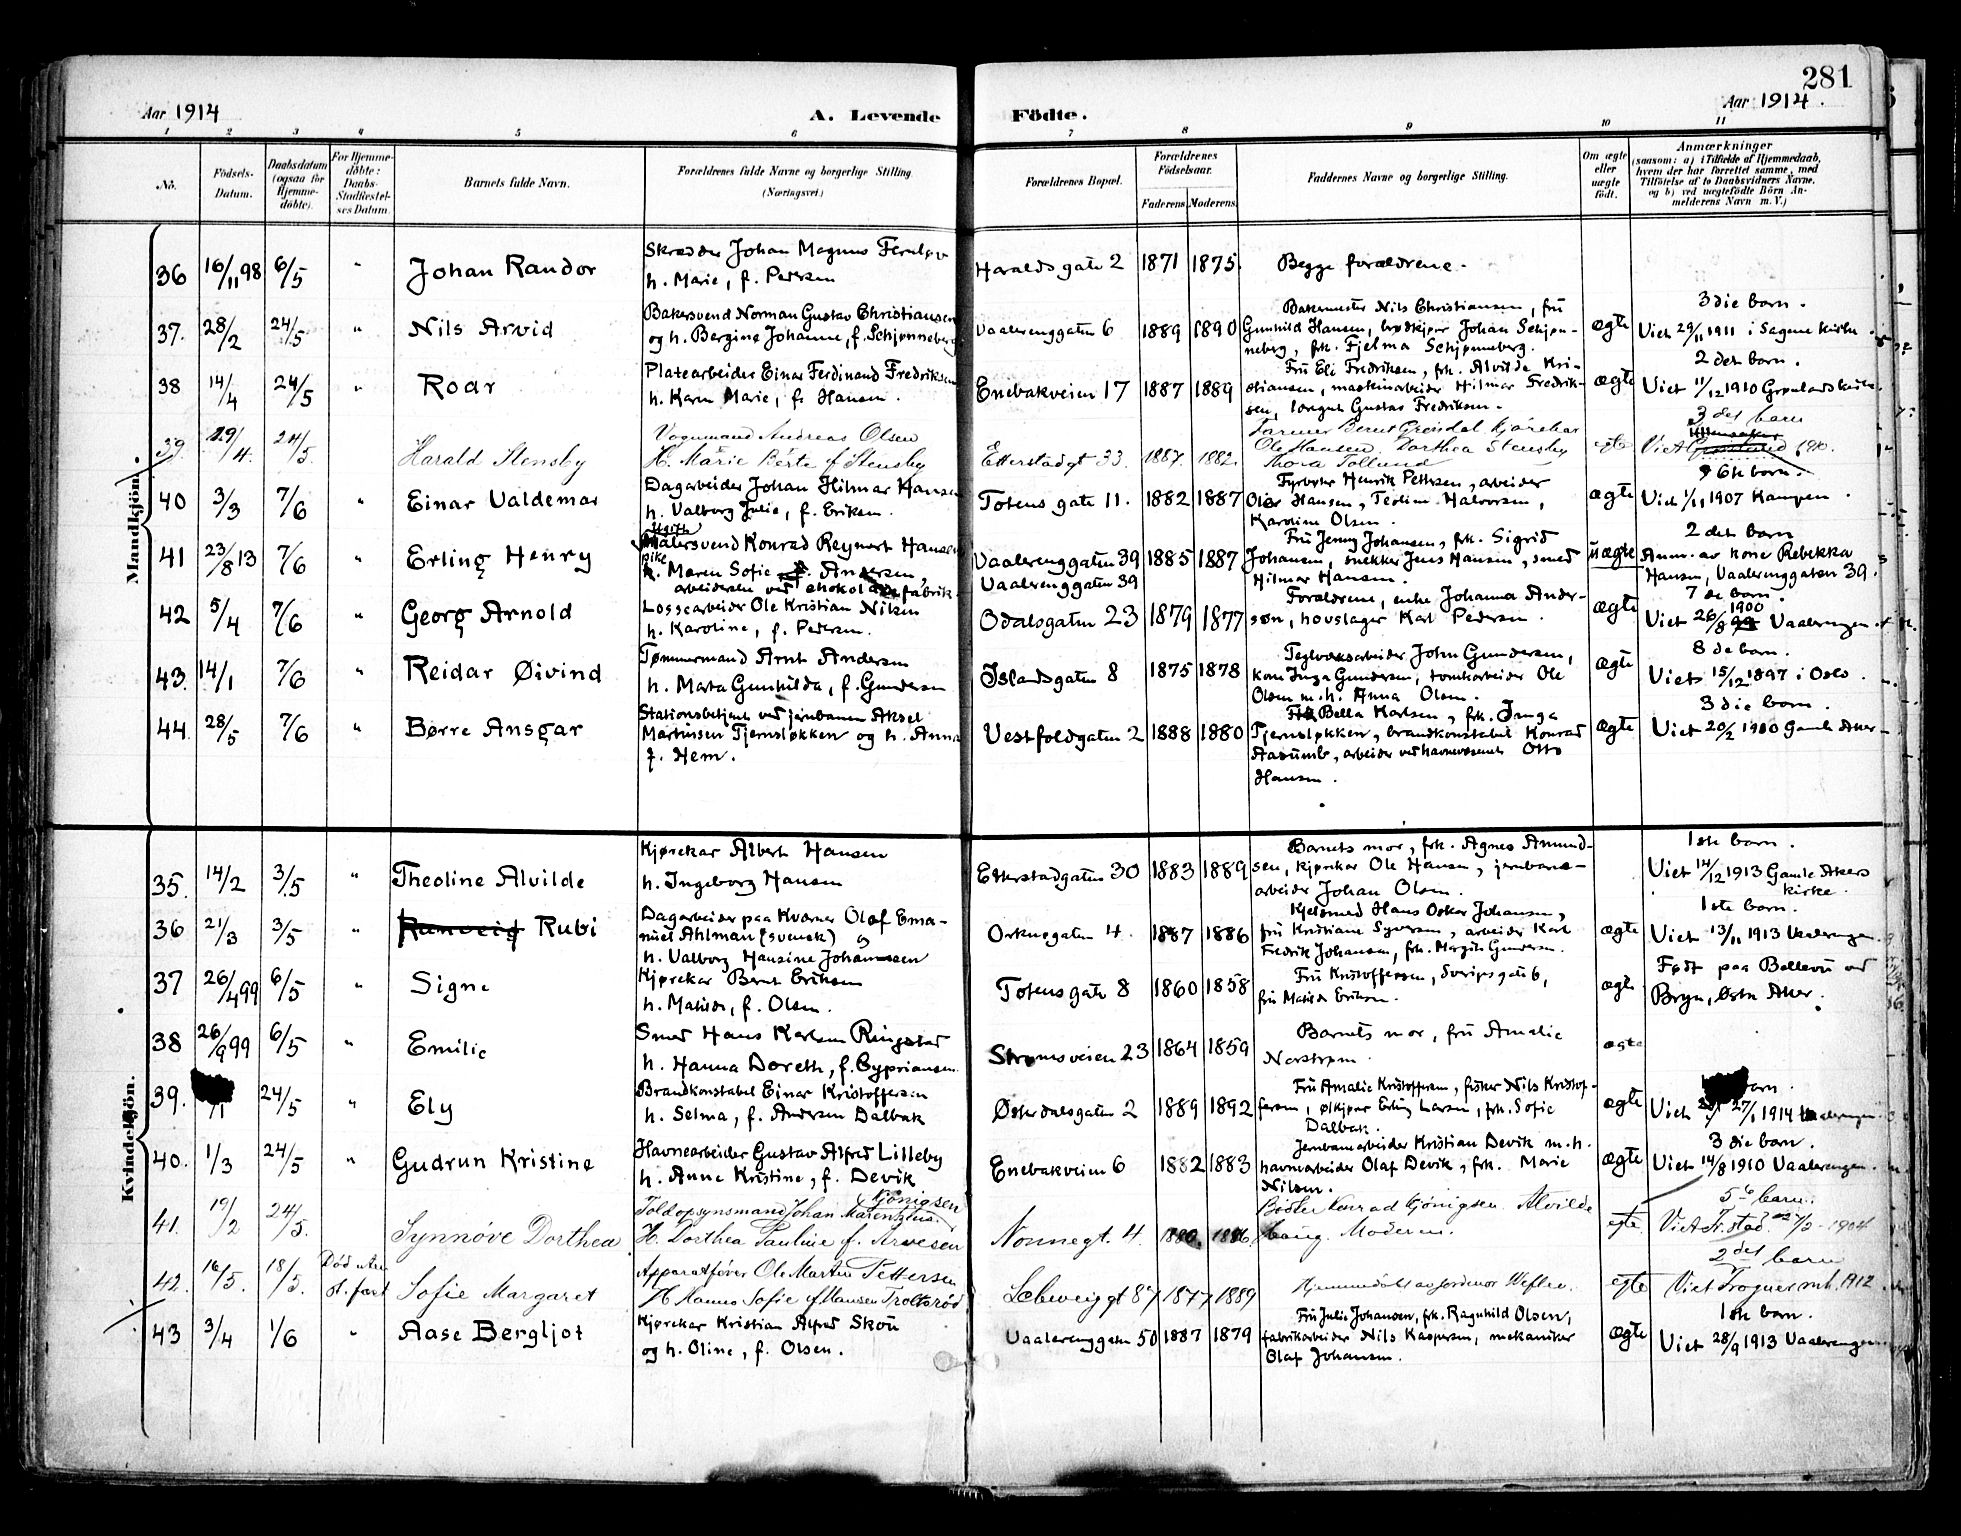 281
Aar 1914 A. Levende Födte. Aar 1914.
1 2 3 4 5 6 7 8 9 10 11
No. Födsels-Datum. Daabsdatum (ogsaa for Hjemme-döbte). For Hjemme-döbte: Daabs-Stadfæstel-ses Datum. Barnets fulde Navn. Forældrenes fulde Navne og borgerlige Stilling. (Næringsvei) Forældrenes Bopæl. Forældrenes Födselsaar. Faderens Moderens Faddernes Navne og borgerlige Stilling. Om ægte eller uægte födt. Anmærkninger (saasom: a) i Tilfælde af Hjemmedaab, hvem der har forrettet samme, med Tilföielse af to Daabsvidners Navne, og b) ved uægtefödte Börn An-melderens Navn m. V.)
Mandkjön.
36 16/11 98 6/5 " Johan Randor
Skrædder Johan Magnus
h. Marie, f. Pedersen
Haraldsgate 2 1871 1875. Begge forældrene.
37. 28/2 24/5 " Nils Arvid
Bakersvend Norman Gustav Christiansen
og h. Bergine Johanne, f. Schjønneberg
Vaalerenggaten 6 1889 1890
Bakermester Nils Christiansen, fru
Gunhild Hansen, brødkjører Johan Schjøn-
neberg, frk. Fjelma Schjønneberg.
ægte
3die barn.
Viet 29/11 1911 i Sagene kirke.
38 14/4 24/5 " Roar
Platearbeider Einar Ferdinand Fredriksen
h. Karen Marie, f. Hansen.
Enebakveien 17 1887 1889
Fru Eli Fredriksen, frk. Alvilde Kri-
stiansen, maskinarbeider Hilmar Fredrik-
sen, Gustav Fredriksen.
ægte
2 det barn.
Viet 11/12 1910 Grønlands kirke.
39. 29/4. 24/5. Harald Stensby
Vognmand Andreas Olsen
H. Marie Berte f. Stensby
Etterstadgt 33. 1887. 1882.
Farmer Bernt Grendal Kjørekar
Ole Hansen. Dorthea Stensby
Thora Tollund
egte
3 det barn
Viet 1910.
40 3/3 7/6 " Einar Valdemar
Dagarbeider Johan Hilmar Hansen
h. Valborg Julie, f. Eriksen.
Totens gate 11. 1882 1887
Fyrbøter Henrik Pettersen, arbeider
Olaf Hansen, Teoline Halvorsen,
Karoline Olsen.
ægte
6te barn.
Viet 1/11 1907 Kampen.
41 23/8 13 7/6 " Erling Henry
Ugift
Malersvend Konrad Reynert Hansen
pike Maren Sofie Andersen,
arbeiderske ved chokoladefabrik.
Vaalerenggaten 39 1885 1887
Vaalerenggaten 39
Fru Jenny Johansen, frk. Sigrid
Johansen, snekker Jens Hansen, smed
Hilmar Hansen.
uægte
2 det barn
Anm. av kone Rebekka
Hansen, Vaalerenggaten 39.
42 5/4 7/6 " Georg Arnold
Lossearbeider Ole Kristian Nilsen
h. Karoline, f. Pedersen.
Odalsgaten 23 1879 1877
Forældrene, enke Johanna Ander-
søn, hovslager Karl Pedersen.
ægte
7 de barn.
1900
Viet 26/8 Vaalerengen.
43. 14/1 7/6 " Reidar Øivind
Tømmermand Arnt Andersen
h. Marta Gunhilda, f. Gundersen
Islandsgaten 8 1875 1878
Teglverksarbeider John Gundersen,
kone Inga Gundersen, tomtearbeider Ole
Olsen m. h. Anna Olsen.
ægte
8 de barn.
Viet 15/12 1897 i Oslo.
44. 28/5 7/6 " Børre Ansgar
Stationsbetjent ved jernbanen Aksel
Martinsen Tjernsløkken og h. Anna
f. Hem.
Vestfoldgaten 2 1888 1880
Bella Karlsen, frk. Inga
Tjernsløkken, brandkonstabel Konrad
Aasumb, arbeider ved havnevæsenet Otto
Hansen.
ægte
3 die barn.
Viet 20/2 1910 Gamle Aker
Kvindekjön.
35. 14/2 3/5 " Theoline Alvilde
Kjørekar Albert Hansen
h. Ingeborg Hansen
Etterstadgaten 30 1883 1889
Barnets mor, frk. Agnes Amund-
sen, kjørekar Ole Hansen, jernbane-
arbeider Johan Olsen.
1ste barn.
Viet 14/12 1913 Gamle Akers
kirke.
36 21/3 3/5 " Runveig Rubi
Dagarbeider paa Kværner Olaf Ema-
nuel Ahlman (svensk) og
h. Valborg Hansine Johannessen
Orknøgaten 4. 1887 1886
Kjelsmed Hans Oskar Johansen,
fru Kristiane Syversen, arbeider Karl
Fredrik Johansen, frk. Margit Gundersen.
ægte
1ste barn.
Viet 13/11 1913 Vaalerengen.
37 26/4 99 6/5 " Signe
Kjørekar Bernt Eriksen
h. Matilde, f. Olsen.
Totensgate 8 1860 1858
Fru Kristoffersen, Sverigsgate 6,
fru Matilde Eriksen.
ægte
Født paa Bellevu ved
Bryn, Østre Aker.
38 26/9 99 6/5 " Emilie
Smed Hans Karlsen Ringstad
h. Hanna Doreth, f. Cypriansen.
Strømsveien 23 1864 1859
Barnets mor, fru Amalie
Norstrøm.
ægte
39. /1 24/5 " Ely
Brandkonstabel Einar Kristoffersen
h. Selma, f. Andersen Dalbak
Østerdalsgaten 2 1889 1892
Fru Amalie Kristoffersen, fisker Nils Kristof-
fersen, ølkjører Erling Larsen, frk. Sofie
Dalbak.
ægte
barn.
Viet 27/1 1914 Vaalerengen.
40. 1/3 24/5 " Gudrun Kristine
Havnearbeider Gustav Alfred Lilleby
h. Anne Kristine, f. Devik
Enebakveien 6 1882 1883
Jernbanearbeider Kristian Devik m. h.
havnearbeider Olaf Devik, frk. Marie
Nilsen.
ægte
3 die barn.
Viet 14/8 1910 Vaalerengen.
41. 19/2 24/5. Synnöve Dorthea
Gjönigsen
Toldopsynsmand Johan
H. Dorthea Pauline f. Arvesen
Nonnegt. 4. 1880. 1886
Konrad Gjönigsen. Alvilde
Haug. Moderen.
egte.
5te barn.
Viet Fr.stad 1904
42. 16/5. 18/5. Död
st. fæst
Sofie Margaret
Apparatföver Ole Martin Pettersen
H. Hanna Sofie f. Hansen Troltsröd
Schweiggt 87 1877 1889
Hjemmedöbt av Jordmor
egte
2 det barn
Viet Frogner mh. 1912
43 3/4 1/6 " Aase Bergljot
Kjørekar Kristian Alfred Skou
og h. Oline, f. Olsen.
Vaalerenggaten 50 1887 1879
Fru Julie Johansen, frk. Ragnhild Olsen,
fabrikarbeider Nils Kaspersen, mekaniker
Olaf Johansen.
ægte
1ste barn.
Viet 28/9 1913 Vaalerengen